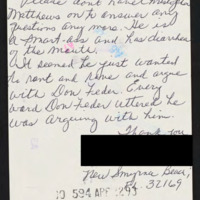 Please don't have Mr. Chris
Matthews on to answer any
questions any more. He is
a smart-ass and has diarrhea
of the mouth.
All seemed he just wanted
to rant and rave and argue
with Don Feder. Every
word Don Feder uttered he
was arguing with him.
Thank you
New Smyrna Beach,
Fl. 32169
594 APR